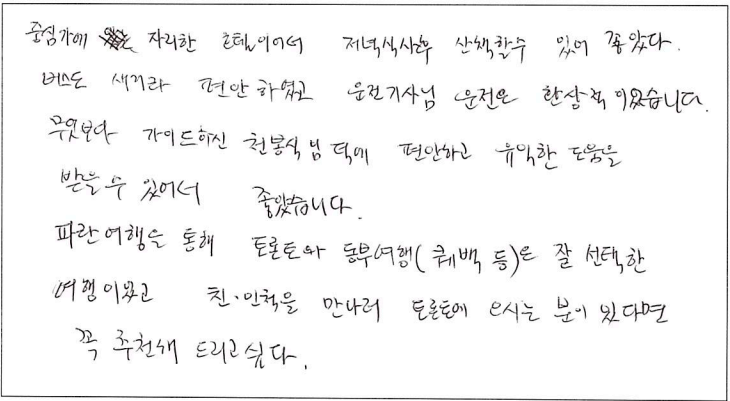 중심가에 자리한 호텔이어서 저녁식사후 산책할수 있어 좋았다.
버스도 새거라 편안하였고 운전기사님 운전은 환상적이었습니다.
무엇보다 가이드하신 천봉식님 덕에 편안하고 유익한 도움을
받을 수 있어서 좋았습니다.
파란여행을 통해 토론토와 동부여행(퀘백 등)은 잘 선택한
여행이었고 친·인척을 만나러 토론토에 오시는 분이 있다면
꼭 추천해 드리고 싶다.